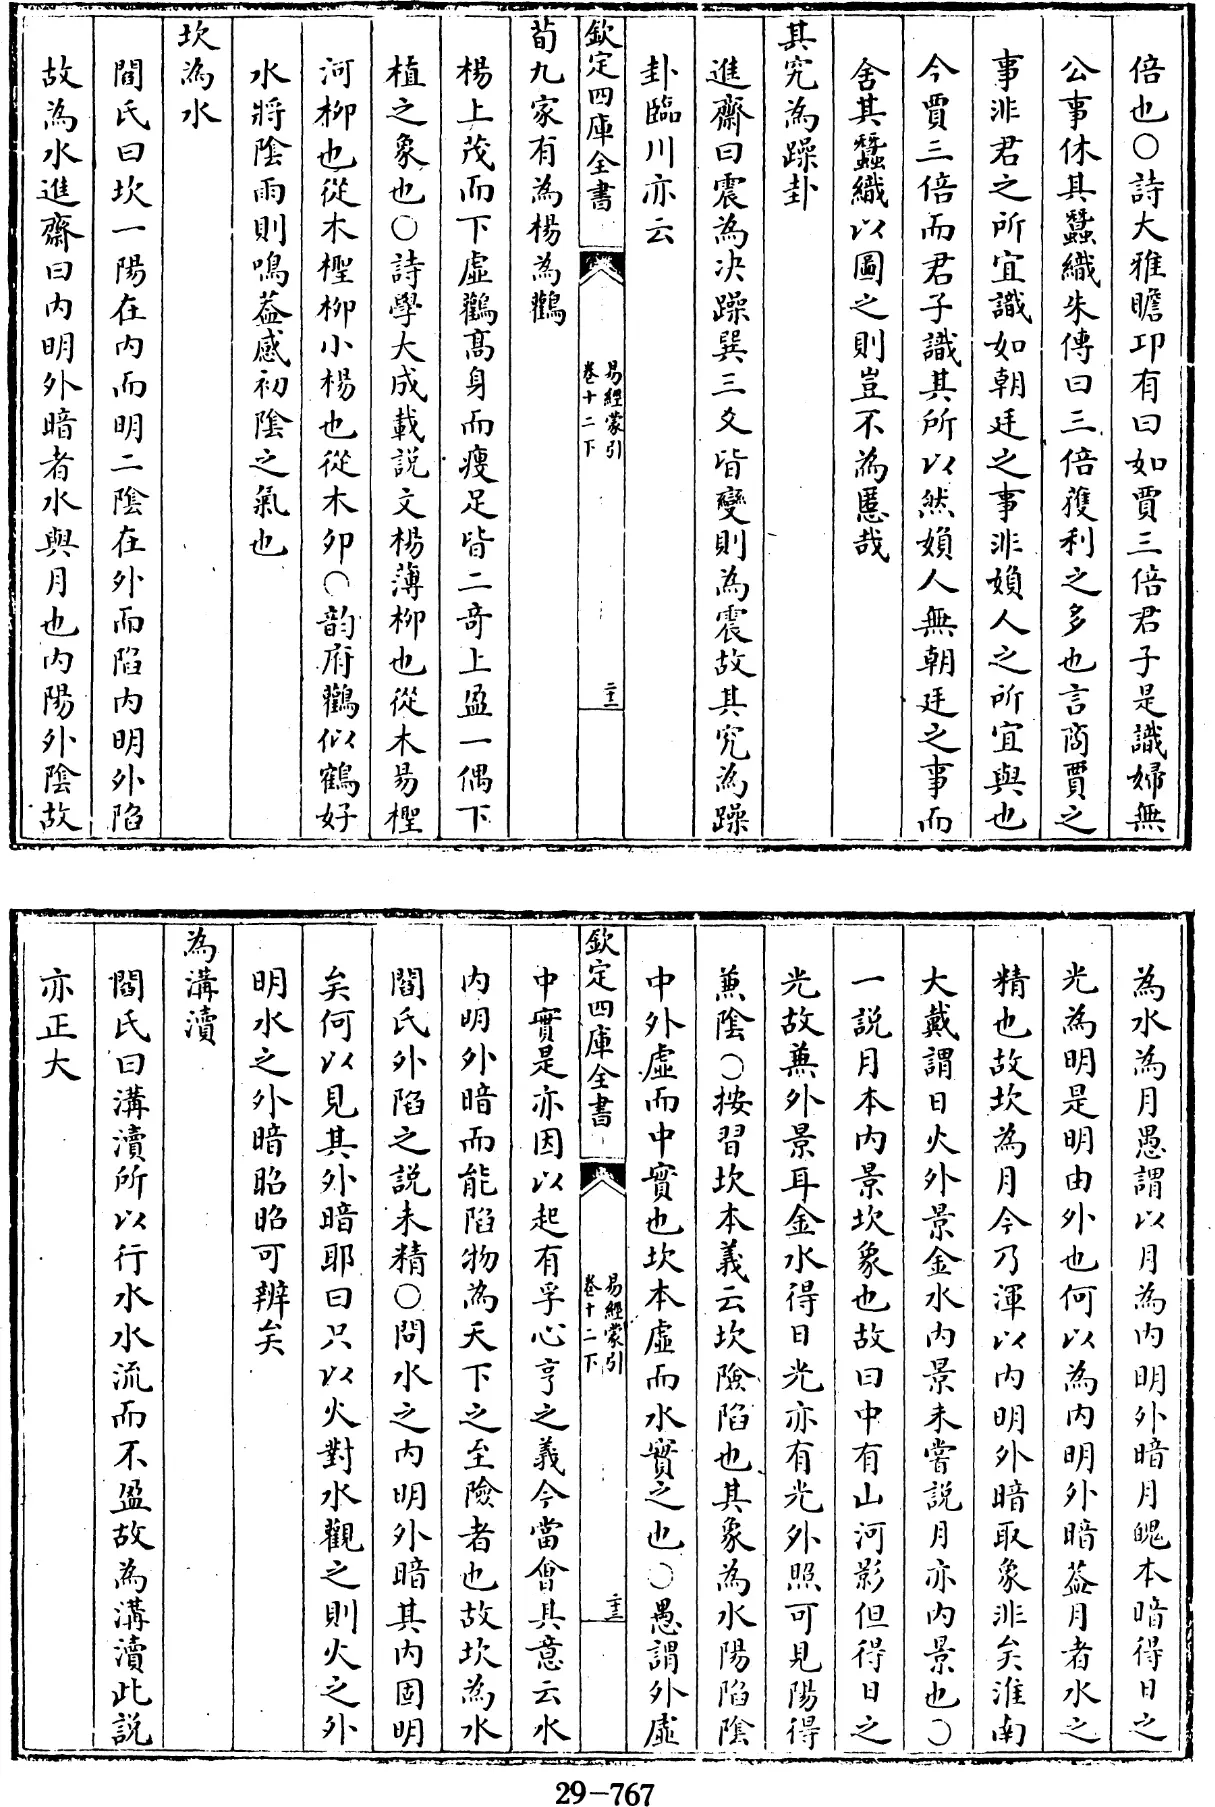 倍也○詩大雅瞻卬有曰如賈三倍君子是識婦無
公事休其蠶織朱傳曰三倍獲利之多也言商賈之
事非君之所宜識如朝廷之事非婦人之所宜與也
今賈三倍而君子識其所以然婦人無朝廷之事而
舍其蠶織以圖之則豈不為慝哉
其究為躁卦
進齋曰震為决躁巽三爻皆變則為震故其究為躁
卦臨川亦云
欽定四庫全書
易經蒙引
卷十二下
二十二
荀九家有為楊為鸛
楊上茂而下虛鸛髙身而瘦足皆二奇上盈一偶下
植之象也○詩學大成載説文楊薄柳也從木昜檉
河柳也從木檉柳小楊也從木卯○韵府鸛似鶴好
水將陰雨則鳴葢感初陰之氣也
坎為水
閻氏曰坎一陽在内而明二陰在外而陷内明外陷
故為水進齋曰内明外暗者水與月也内陽外陰故
為水為月愚謂以月為内明外暗月魄本暗得日之
光為明是明由外也何以為内明外暗葢月者水之
精也故坎為月今乃渾以内明外暗取象非矣淮南
大戴謂日火外景金水内景未嘗説月亦内景也○
一説月本内景坎象也故曰中有山河影但得日之
光故兼外景耳金水得日光亦有光外照可見陽得
兼陰○按習坎本義云坎險陷也其象為水陽陷陰
中外虛而中實也坎本虛而水實之也○愚謂外虛
欽定四庫全書
易經蒙引
卷十二下
二十三
中實是亦因以起有孚心亨之義今當會其意云水
内明外暗而能陷物為天下之至險者也故坎為水
閻氏外陷之説未精○問水之内明外暗其内固明
矣何以見其外暗耶曰只以火對水觀之則火之外
明水之外暗昭昭可辨矣
為溝瀆
閻氏曰溝瀆所以行水水流而不盈故為溝瀆此説
亦正大
29-767